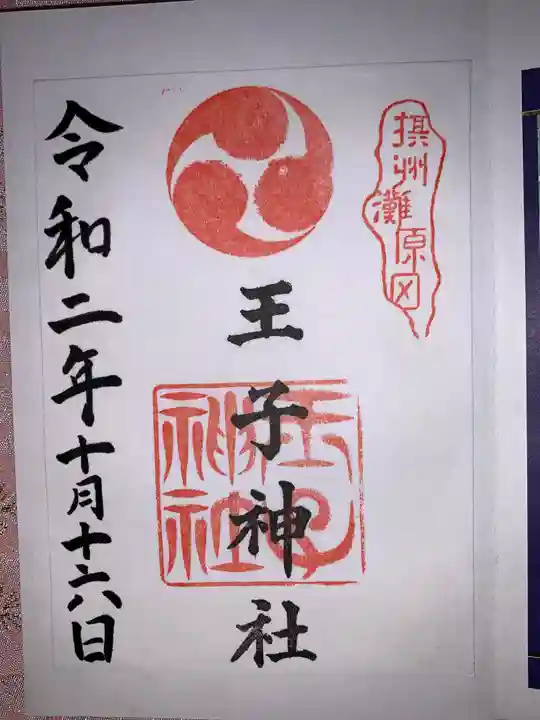 摂州
灘
原田
王子神社
王子
神社
令和二年十月十六日